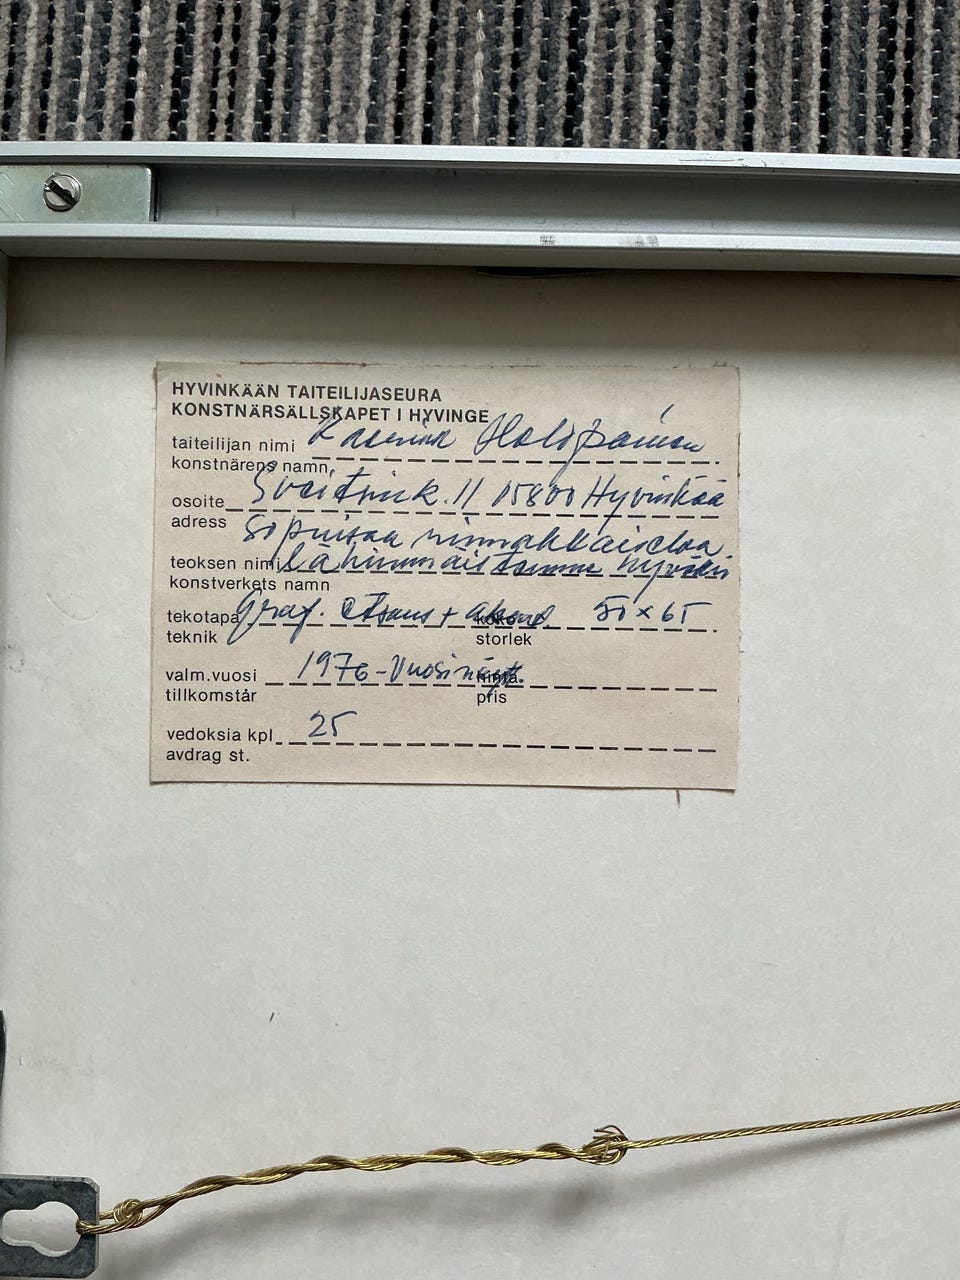 HYVINKÄÄN TAITEILIJASEURA
KONSTNÄRSÄLLSKAPET I HYVINGE
taiteilijan nimi Holopainen
konstnärens namn
osoite Sveitsink. 11 15800 Hyvinkää
adress
Sopuisaa rinnakkaiseloa
teoksen nimi lähimmäistemme hyväksi
konstverkets namn
tekotapa Graf. Etsaus + koko 50 x 65
teknik storlek
valm.vuosi 1976 - Vuosinäytt. hinta
tillkomstår pris
vedoksia kpl 25
avdrag st.